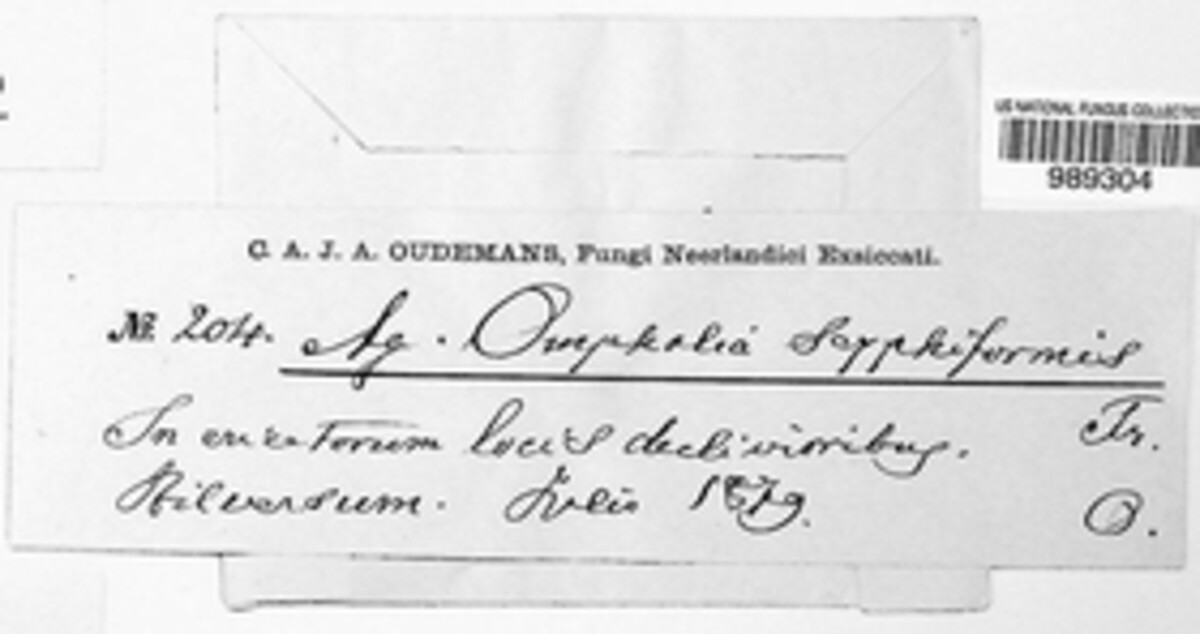 US NATIONAL FUNGUS COLLECTIO
989304
C. A. J. A. OUDEMANS, Fungi Neerlandici Exsiccati.
№ 204. Ag. Omphalia scyphiformis
Fr.
In ericetorum locis declivioribus.
Hilversum. Julio 1879.
O.